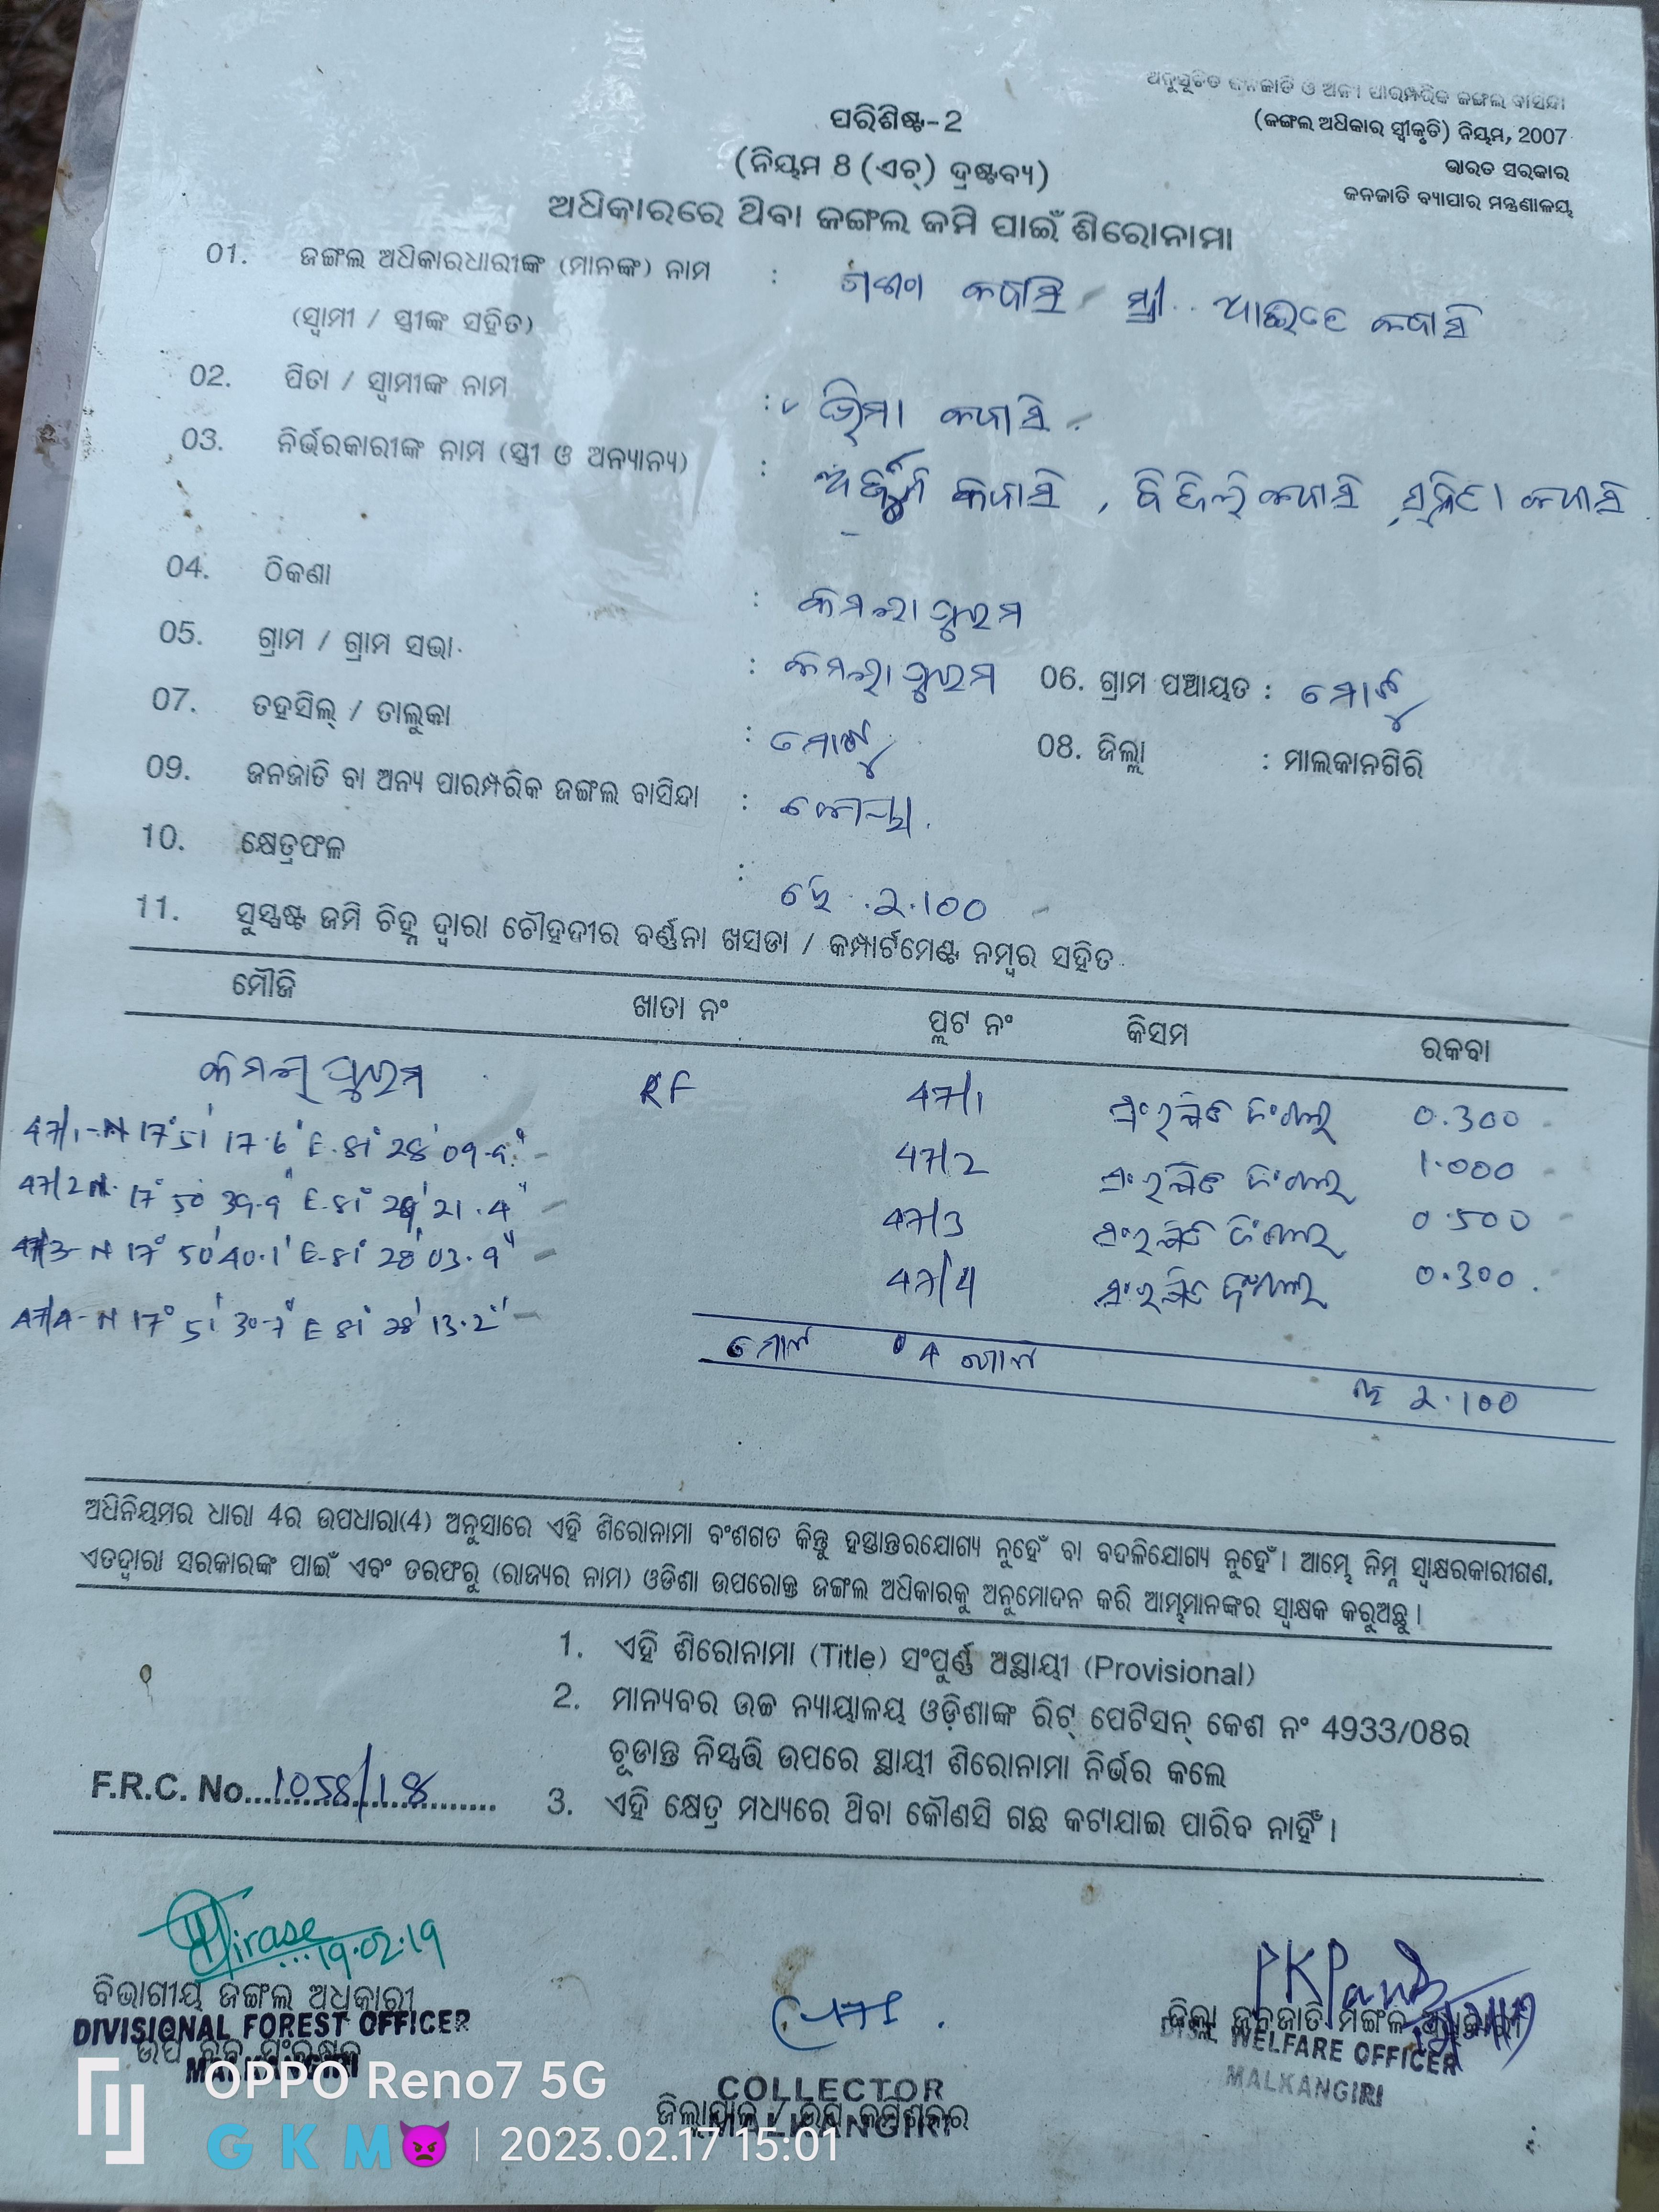 ଅନୁସୂଚିତ ଜନଜାତି ଓ ଅନ୍ୟ ପାରମ୍ପରିକ ଜଙ୍ଗଲ ବାସିନ୍ଦା
(ଜଙ୍ଗଲ ଅଧିକାର ସ୍ୱୀକୃତି) ନିୟମ, 2007
ଭାରତ ସରକାର
ଜନଜାତି ବ୍ୟାପାର ମନ୍ତ୍ରଣାଳୟ
ପରିଶିଷ୍ଟ-2
(ନିୟମ 8 (ଏଚ୍) ଦ୍ରଷ୍ଟବ୍ୟ)
ଅଧିକାରରେ ଥିବା ଜଙ୍ଗଲ ଜମି ପାଇଁ ଶିରୋନାମା
01. ଜଙ୍ଗଲ ଅଧିକାରଧାରୀଙ୍କ (ମାନଙ୍କ) ନାମ :
(ସ୍ୱାମୀ / ସ୍ତ୍ରୀଙ୍କ ସହିତ)
02. ପିତା / ସ୍ୱାମୀଙ୍କ ନାମ : ଭିମା କବାସି
03. ନିର୍ଭରକାରୀଙ୍କ ନାମ (ସ୍ତ୍ରୀ ଓ ଅନ୍ୟାନ୍ୟ) :
04. ଠିକଣା :
05. ଗ୍ରାମ / ଗ୍ରାମ ସଭା :
06. ଗ୍ରାମ ପଞ୍ଚାୟତ : ମୋଟୁ
07. ତହସିଲ୍ / ତାଲୁକା : ମୋଟୁ
08. ଜିଲ୍ଲା : ମାଲକାନଗିରି
09. ଜନଜାତି ବା ଅନ୍ୟ ପାରମ୍ପରିକ ଜଙ୍ଗଲ ବାସିନ୍ଦା : କୋୟା
10. କ୍ଷେତ୍ରଫଳ : ହେ 2.100
11. ସୁସ୍ପଷ୍ଟ ଜମି ଚିହ୍ନ ଦ୍ୱାରା ଚୌହଦୀର ବର୍ଣ୍ଣନା ଖସଡା / କମ୍ପାର୍ଟମେଣ୍ଟ ନମ୍ବର ସହିତ
ମୌଜି ଖାତା ନଂ ପ୍ଲଟ ନଂ କିସମ ରକବା
RF 47/1 ସଂରକ୍ଷିତ ଜଂଗଲ 0.300
47/1-N 17° 51' 17.6" E-81° 28' 09.9"
47/2 ସଂରକ୍ଷିତ ଜଂଗଲ 1.000
47/2 N- 17° 50' 39.9" E-81° 21.4"
47/3 ସଂରକ୍ଷିତ ଜଂଗଲ 0.500
47/3-N 17° 50' 40.1" E-81° 28' 03.9"
47/4 ସଂରକ୍ଷିତ ଜଂଗଲ 0.300
47/4-N 17° 51' 30.7" E 81° 28' 13.2"
ମୋଟ 4 ହେ 2.100
ଅଧିନିୟମର ଧାରା 4ର ଉପଧାରା(4) ଅନୁସାରେ ଏହି ଶିରୋନାମା ବଂଶଗତ କିନ୍ତୁ ହସ୍ତାନ୍ତରଯୋଗ୍ୟ ନୁହେଁ ବା ବଦଳିଯୋଗ୍ୟ ନୁହେଁ। ଆମ୍ଭେ ନିମ୍ନ ସ୍ୱାକ୍ଷରକାରୀଗଣ,
ଏତଦ୍ୱାରା ସରକାରଙ୍କ ପାଇଁ ଏବଂ ତରଫରୁ (ରାଜ୍ୟର ନାମ) ଓଡିଶା ଉପରୋକ୍ତ ଜଙ୍ଗଲ ଅଧିକାରକୁ ଅନୁମୋଦନ କରି ଆମ୍ଭମାନଙ୍କର ସ୍ୱାକ୍ଷକ କରୁଅଛୁ।
1. ଏହି ଶିରୋନାମା (Title) ସଂପୂର୍ଣ୍ଣ ଅସ୍ଥାୟୀ (Provisional)
2. ମାନ୍ୟବର ଉଚ୍ଚ ନ୍ୟାୟାଳୟ ଓଡ଼ିଶାଙ୍କ ରିଟ୍ ପେଟିସନ୍ କେଶ ନଂ 4933/08ର
ଚୂଡାନ୍ତ ନିସ୍ପତ୍ତି ଉପରେ ସ୍ଥାୟୀ ଶିରୋନାମା ନିର୍ଭର କଲେ
F.R.C. No. 1058/18
3. ଏହି କ୍ଷେତ୍ର ମଧ୍ୟରେ ଥିବା କୌଣସି ଗଛ କଟାଯାଇ ପାରିବ ନାହିଁ।
19.02.19
ବିଭାଗୀୟ ଜଙ୍ଗଲ ଅଧିକାରୀ
DIVISIONAL FOREST OFFICER
ଉପ ବନ ସଂରକ୍ଷକ
MALKANGIRI
COLLECTOR
ଜିଲ୍ଲାପାଳ / ଉପ କମିଶନର
MALKANGIRI
PKPanda
ଜିଲ୍ଲା ଜନଜାତି ମଙ୍ଗଳ ଅଧିକାରୀ
DIST. WELFARE OFFICER
MALKANGIRI
OPPO Reno7 5G
G K M😈 | 2023.02.17 15:01